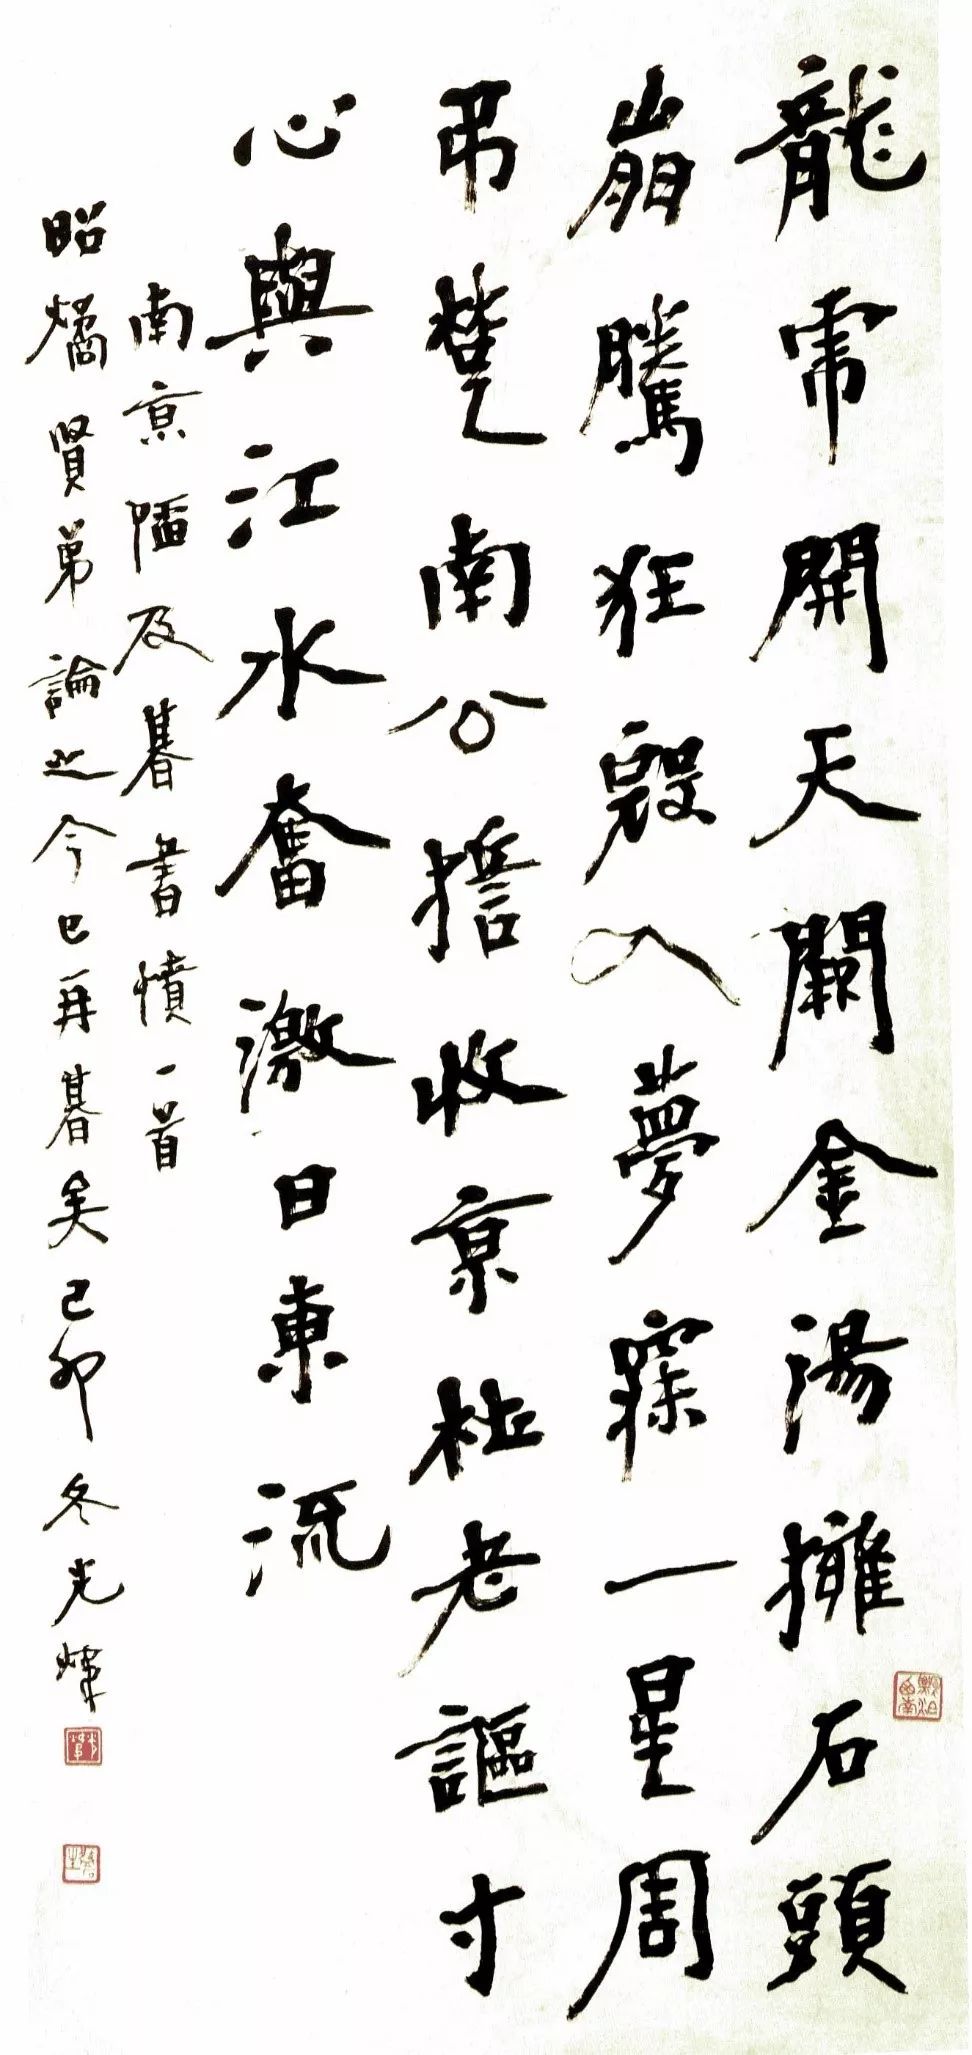 龍虎開天闕金湯擁石頭
崩騰狂寇入夢寐一星周
弔楚南公誓收京杜老謳寸
心與江水奮激日東流
南京陷及朞書憤一首
昭燏賢弟論之今已再朞矣己卯冬光煒